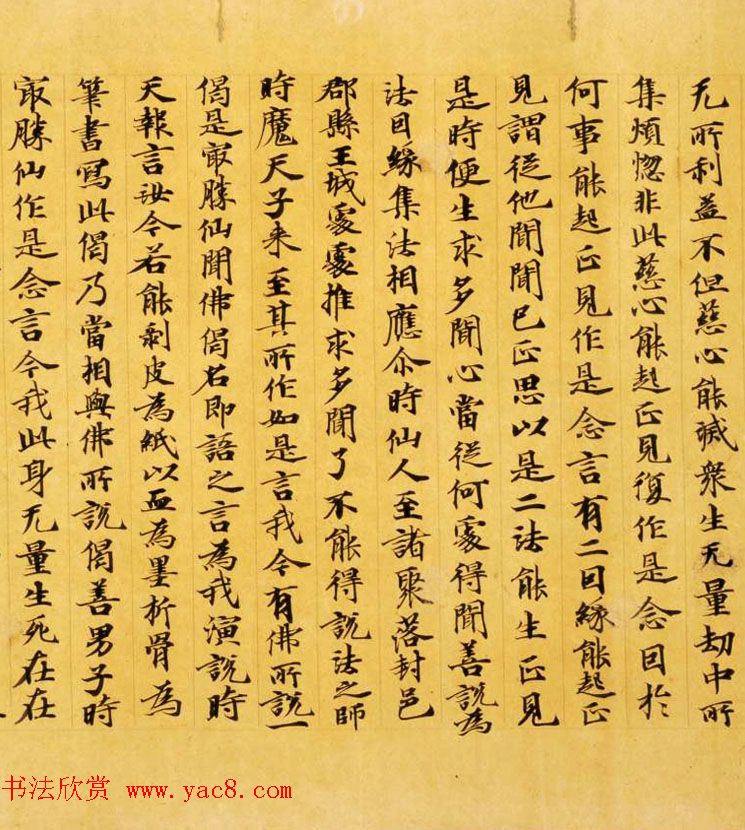 无所利益不但慈心能滅衆生无量劫中所
集煩惚非此慈心能起正見復作是念因於
何事能起正見作是念言有二因緣能起正
見謂從他聞聞已正思以是二法能生正見
是時便生求多聞心當從何處得聞善説為
法因緣集法相應尒時仙人至諸聚落封邑
郡縣王城處處推求多聞了不能得説法之師
時魔天子来至其所作如是言我今有佛所説一
偈是寂勝仙聞佛偈名即語之言為我演説時
天報言汝今若能剥皮為紙以血為墨折骨為
筆書寫此偈乃當相與佛所説偈善男子時
寂勝仙作是念言今我此身无量生死在在
书法欣赏 www.yac8.com